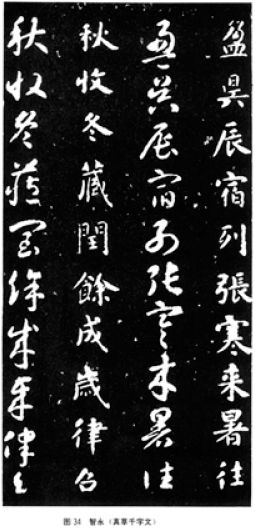 盈昃辰宿列張寒来暑往
盈昃辰宿列張寒来暑往
秋收冬藏閏餘成歲律呂
秋收冬藏閏餘成歲律呂
图 34 智永《真草千字文》